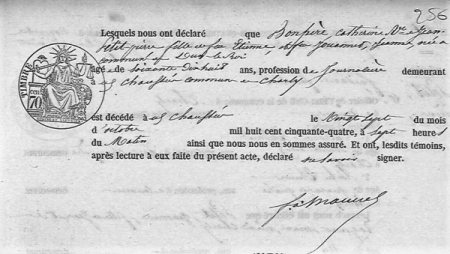 256
Lesquels nous ont déclaré que Bonpère Catherine Ve de Jean
Petit pierre fille de feu Etienne et feu Jouannet, Jeanne, née à
commune de Dun-le-Roi
âgé de soixante dix huit ans, profession de Journalière demeurant
commune de Charly
est décédé à le Vingt Sept du mois
d'octobre mil huit cent cinquante-quatre, à sept heures
du Matin ainsi que nous nous en sommes assuré. Et ont, lesdits témoins,
après lecture à eux faite du présent acte, déclaré ne savoir signer.
TIMBRE
70